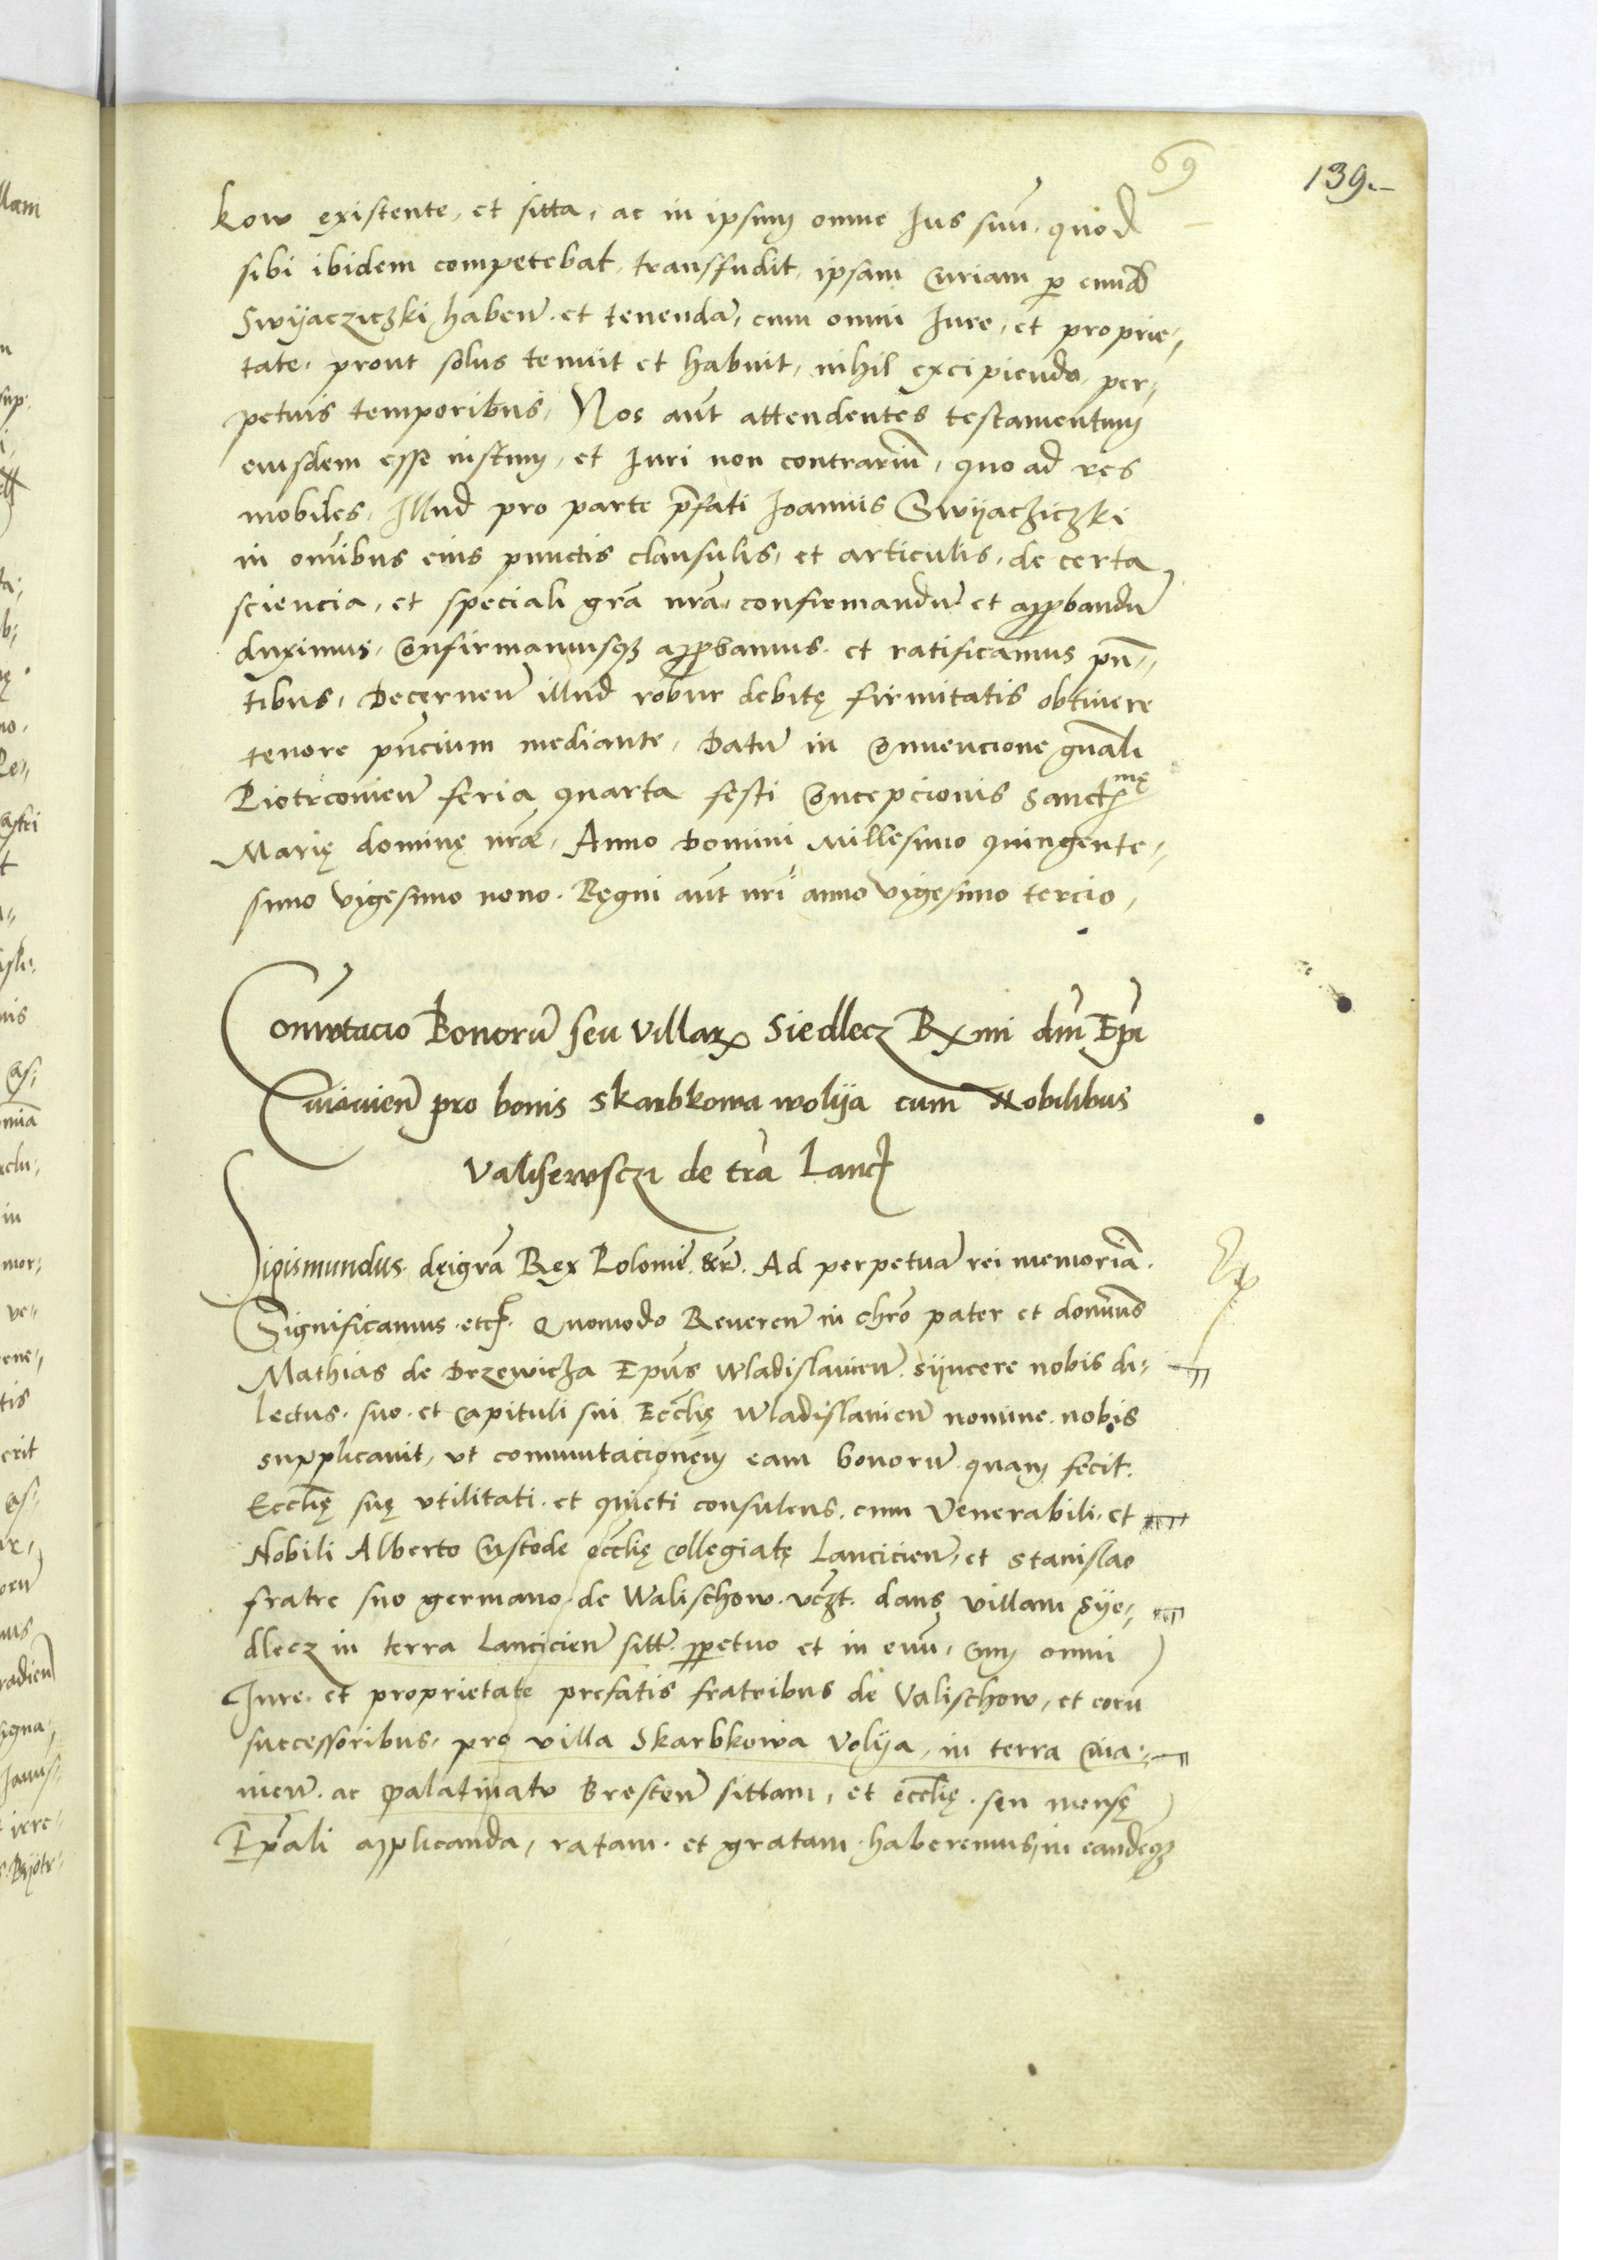 69
139.
kow existente, et sitta, ac in ipsum omne Ius suū quod
sibi ibidem competebat, transfudit, ipsam Curiam p eund
Swyacziczki haben̄ et tenendā, cum omni Iure, et proprie-
tate, prout solus tenuit et habuit, nihil excipiendo, per-
petuis temporibus, Nos aūt attendentes testamentum
eiusdem esse iustum, et Iuri non contrariū, quo ad res
mobiles, Illud pro parte p̄fati Ioannis Swyacziczki
in om̄ibus eius punctis clausulis, et articulis, de certa
sciencia, et speciali grā nrā, confirmandū et approbandū
duximus, Confirmamusq3 approbamus et ratificamus pn̄-
tibus, Decernen̄ illud robur debitę firmitatis obtinere
tenore pn̄cium mediante, Datū in Convencione gn̄ali
Piotrconien̄ feria quarta festi Concepcionis Sanct mę
Marię dominę nr̄ae, Anno Domini Millesimo quingente-
simo vigesimo nono. Regni aūt nrī anno vigesimo tercio,
Com̄utacio Bonorū seu villarꝝ Siedlecz Rꝝmi dn̄i Epī
Cuiavien̄ pro bonis Skarbkowa wolija cum Nobilibus
Valisewsczi de trā Lancꝭ
Sigismundus deigrā Rex Polonię &r̄. Ad perpetuā rei memoriā.
Significamus etcꝭ. Quomodo Reveren̄ in chrō pater et domin̄us
Mathias de Drzewicza Epūs Wladislavien̄ syncere nobis di-
lectus, suo et Capituli sui Eccl̄ię Wladislavien̄ nomine nobis
supplicavit, vt commutacionem eam bonorū quam fecit
Eccl̄ię suę vtilitati et quieti consulens, cum Venerabili et
Nobili Alberto Custode eccl̄ię Collęgiatę Lancicien̄, et Stanislao
fratre suo germano de Walischow vcz̄t. dans villam Sye-
dlecz in terra Lancicien̄ sitt̄ ꝑpetuo et in evū, cum omni
Iure et proprietate prefatis fratribus de Valischow, et eorū
successoribus, pro villa Skarbkowa Volija, in terra Cuia-
vien̄ ac palatinatu Bresten̄ sittam, et eccl̄ię seu mensę
Ep̄ali applicanda, ratam et gratam haberemus, in eandēq3